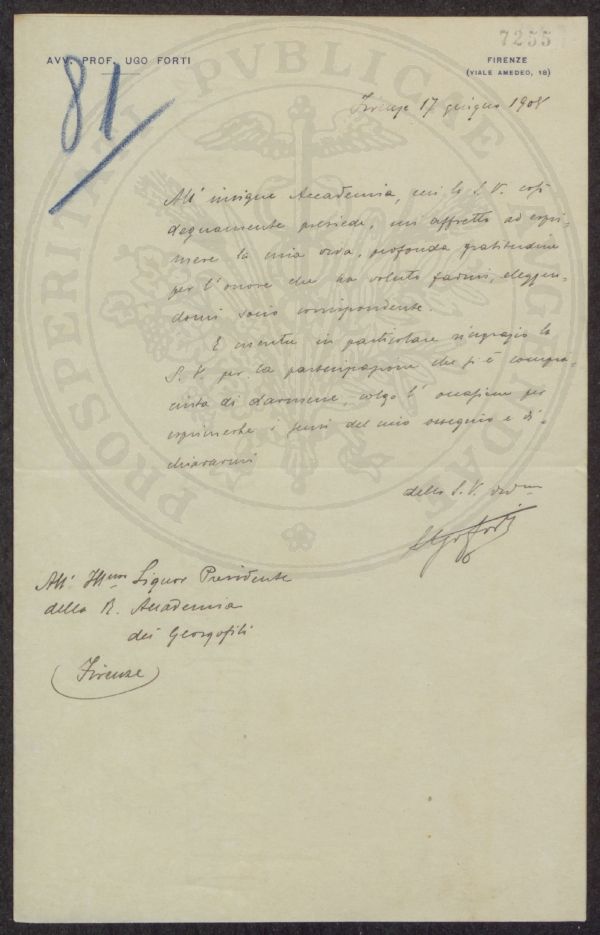 7255
AVV. PROF. UGO FORTI
FIRENZE
(VIALE AMEDEO, 18)
81
Firenze 17 giugno 1908
All' insigne Accademia, cui la S. V. così
degnamente presiede, mi affretto ad espri-
mere la mia viva, profonda gratitudine
per l'onore che ha voluto farmi, eleggen-
domi socio corrispondente.
E mentre in particolare ringrazio la
S. V. per la partecipazione che si è compia-
ciuta di darmene, colgo l' occasione per
esprimerle i sensi del mio ossequio e di-
chiararmi
della S. V. dev.mo
Ugo Forti
All' Ill.mo Signor Presidente
della R. Accademia
dei Georgofili
(Firenze)
PROSPERITATI PUBLICAE AUGENDAE